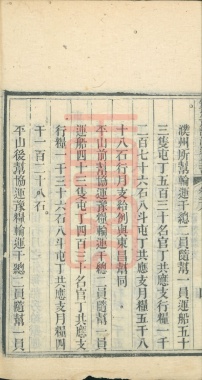 濮州所幫輸運千總二員隨幫一員運船五十
三隻屯丁五百三十名官丁共應支行糧一千
二百七十六石八斗屯丁共應支月糧五千八
十八石行月支給例與東昌幫同
平山前幫協運豫糧輸運千總二員隨幫一員
運船四十三隻屯丁四百三十名官丁共應支
行糧一千三十六石八斗屯丁共應支月糧四
千一百二十八石
平山後幫協運豫糧輸運千總二員隨幫一員